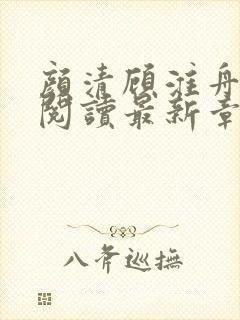 顏清顧淮舟
閱讀最新章
八斧巡撫